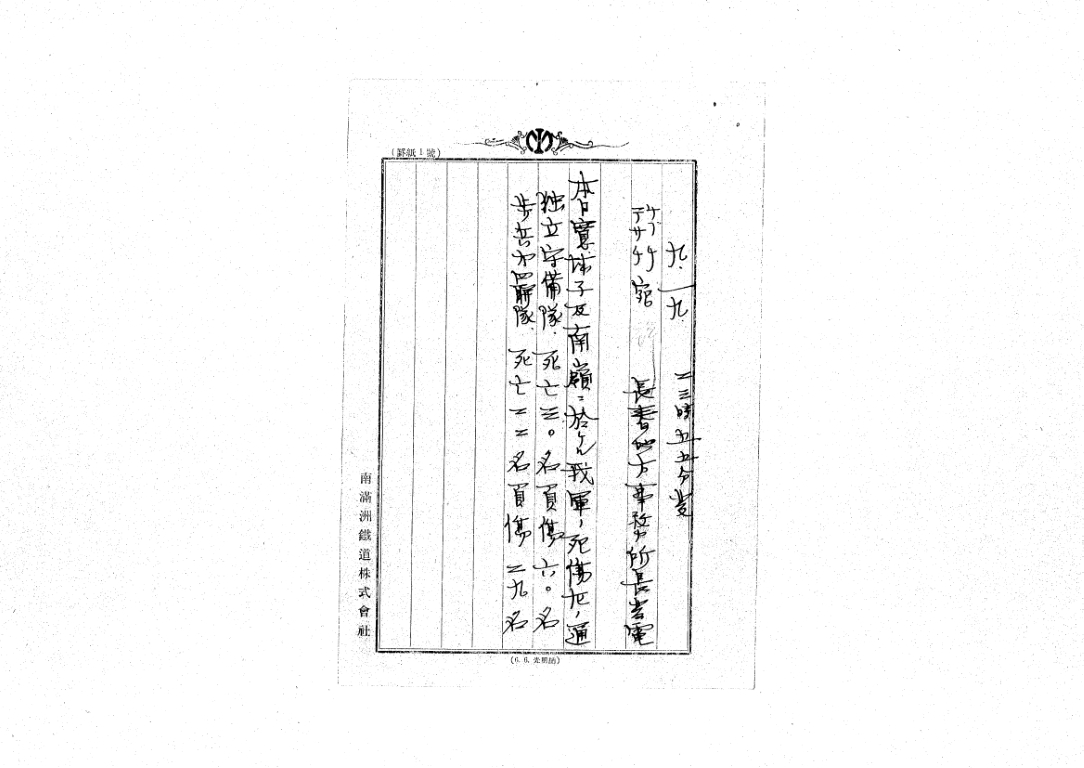 (罫紙1號)
九.一九. 二三時五五分受
竹中 竹舘 長春地方事務所長発電
本日寛城子及南嶺ニ於ケル我軍ノ死傷左ノ通
独立守備隊. 死亡三〇名負傷六〇名
歩兵第四聯隊. 死亡二二名負傷二九名
南滿洲鐵道株式會社